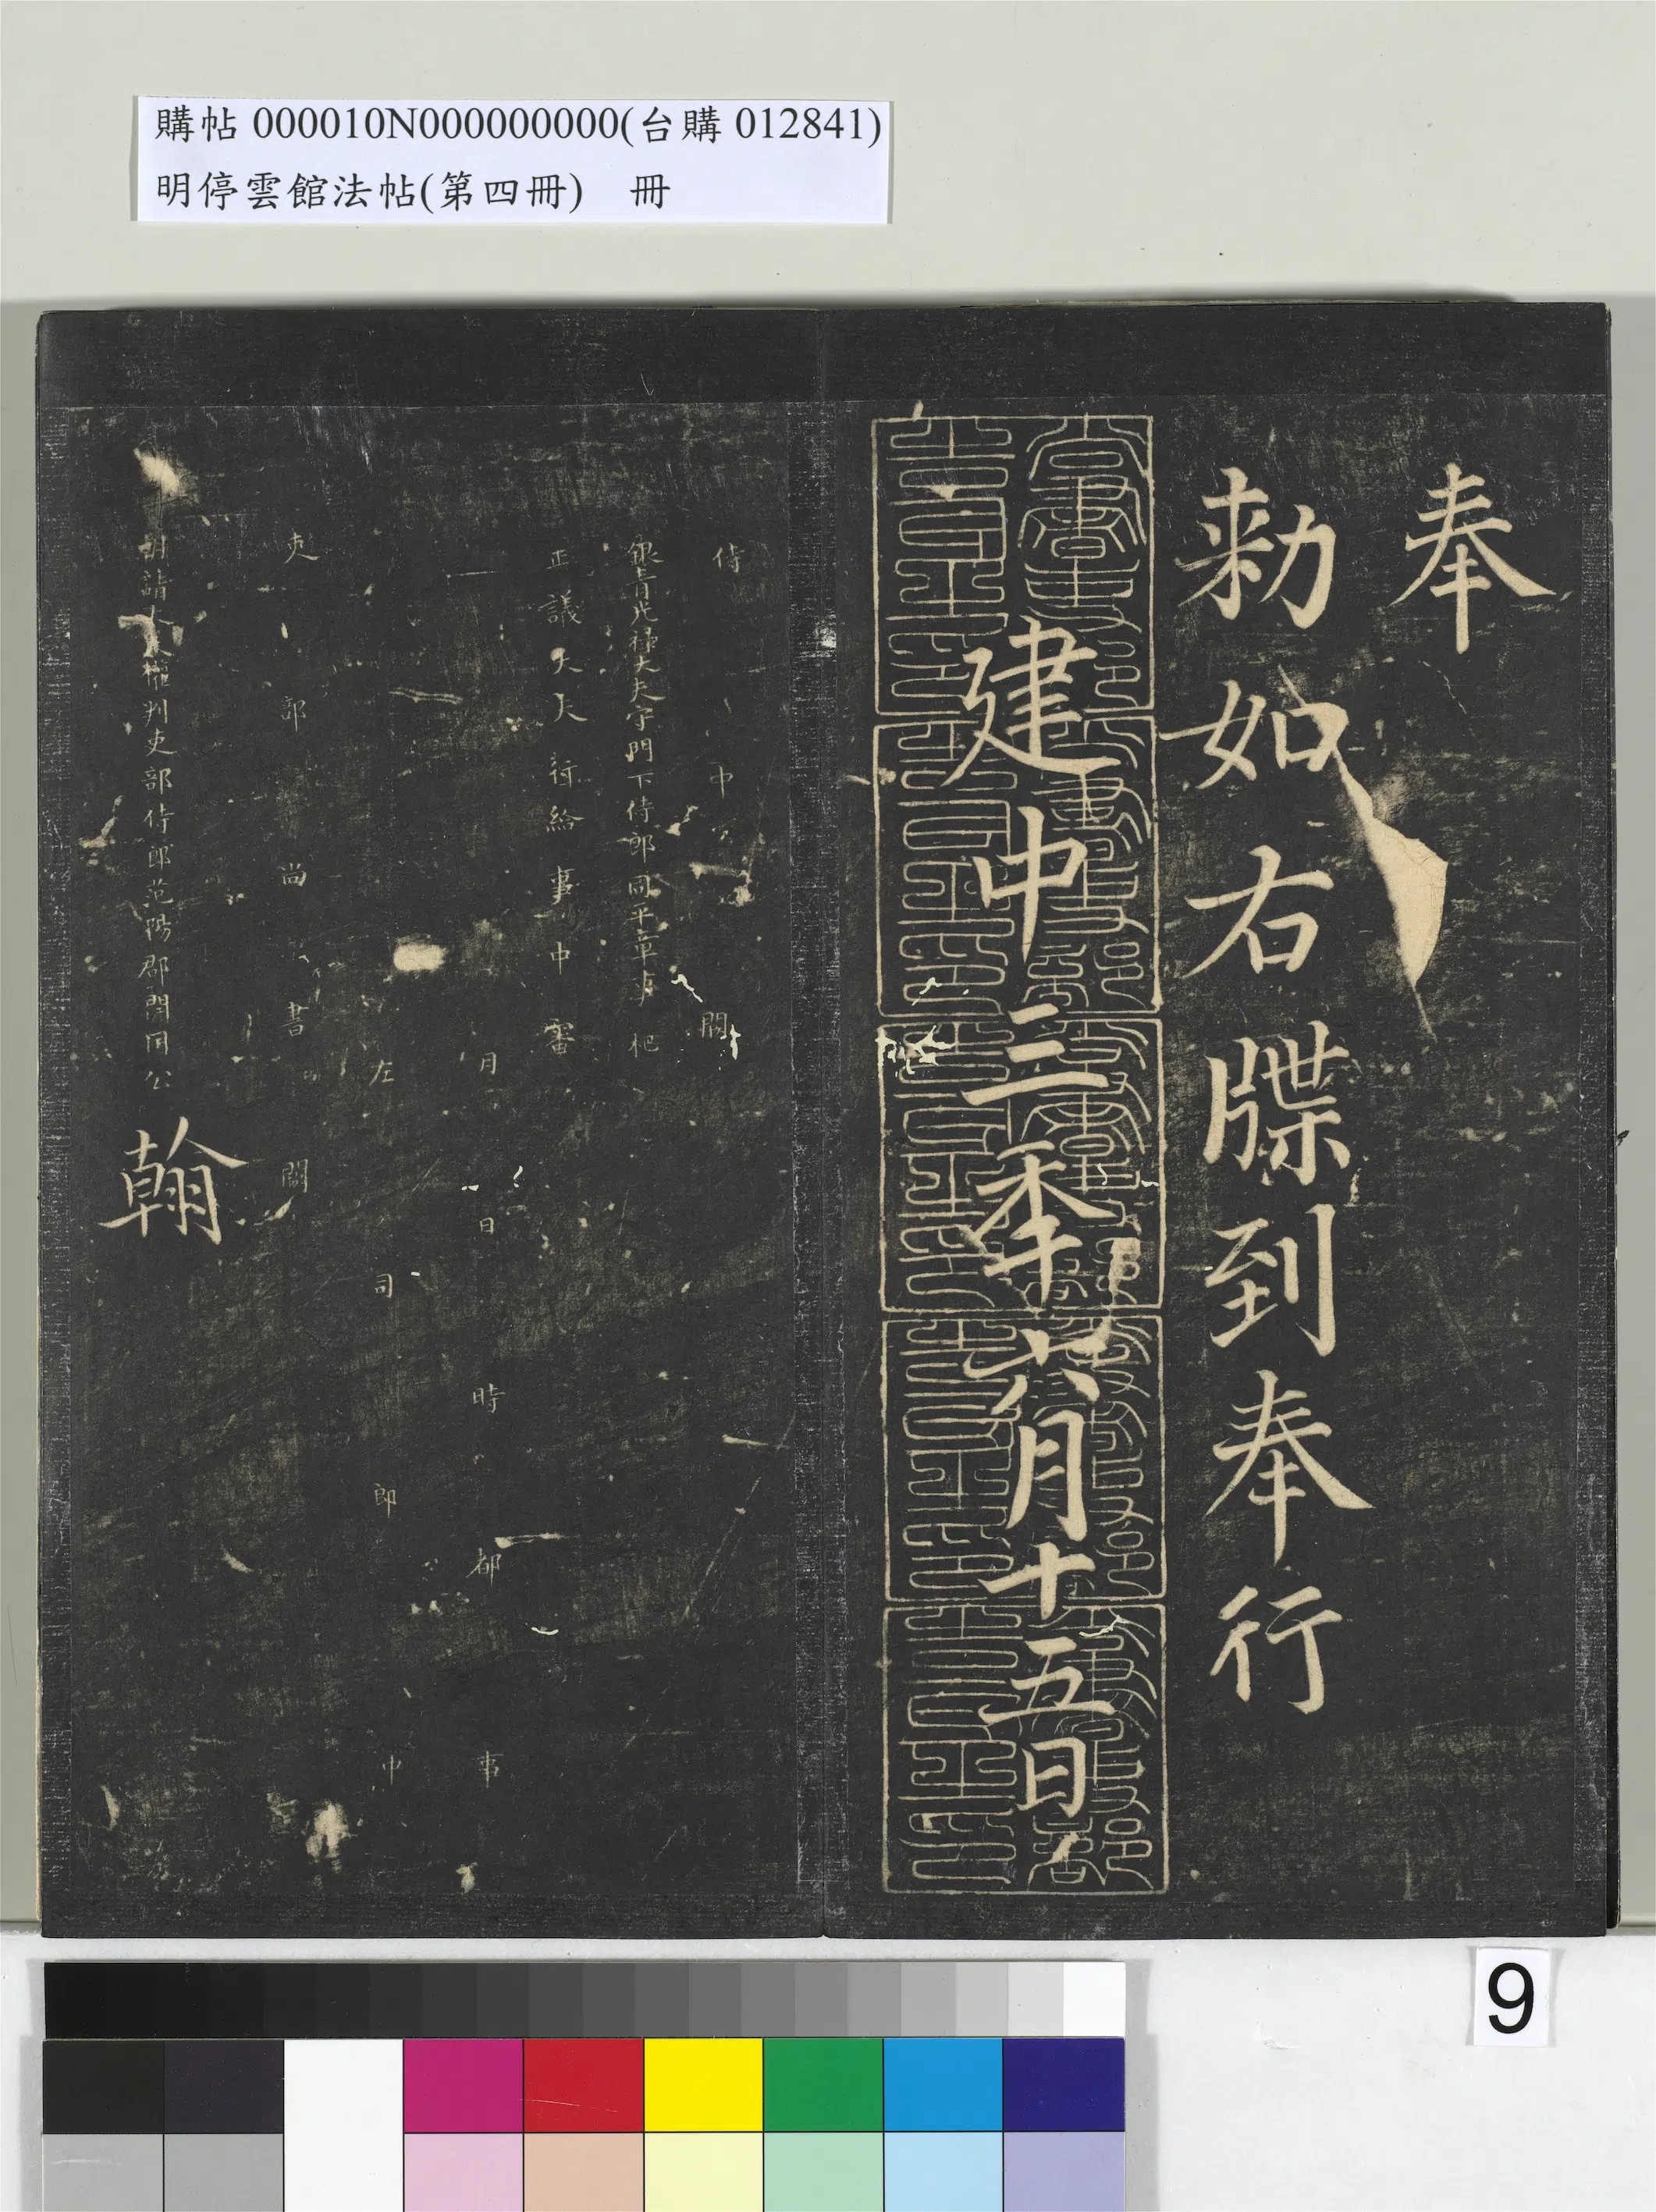 購帖 000010N000000000(台購 012841)
明停雲館法帖(第四冊) 冊
奉
勅如右牒到奉行
建中三季六月十五日
侍中闕
銀青光祿大夫守門下侍郎同平章事 杞
正議大夫行給事中審
月日時都事
左司郎中
吏部尚書闕
朝請大夫權判吏部侍郎范陽郡開國公 翰
9